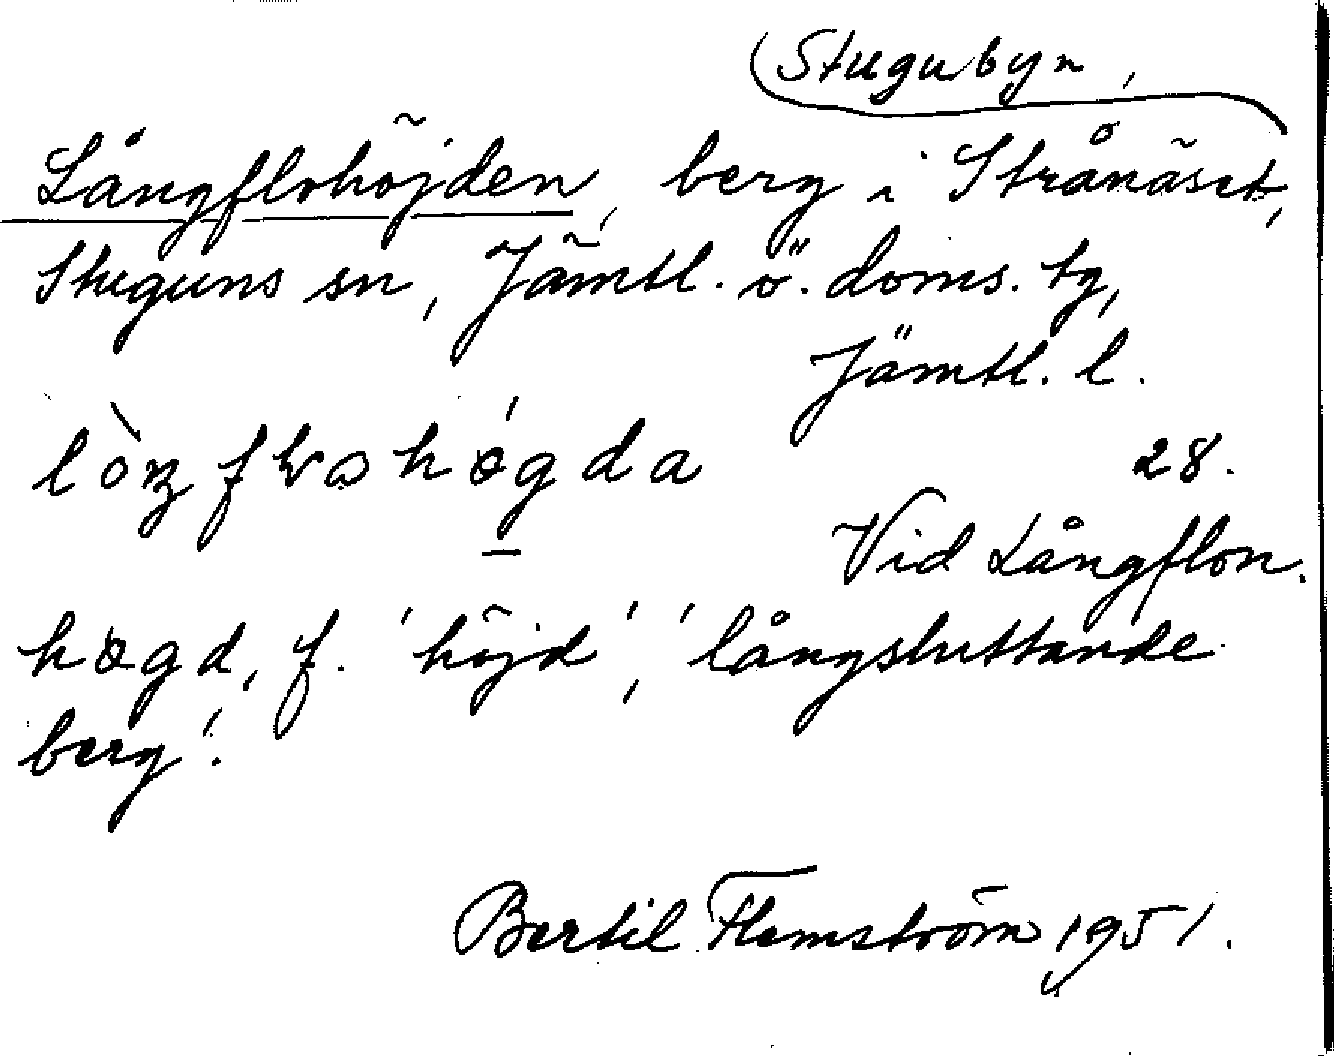 (Stugubyn,
Långflohöjden, berg i Strånäset,
Stuguns sn, Jämtl. ö. doms. tg,
Jämtl. l.
28.
Vid Långflon.
høgd, f. 'höjd', 'långsluttande
berg'.
Bertil Flemström 1951.